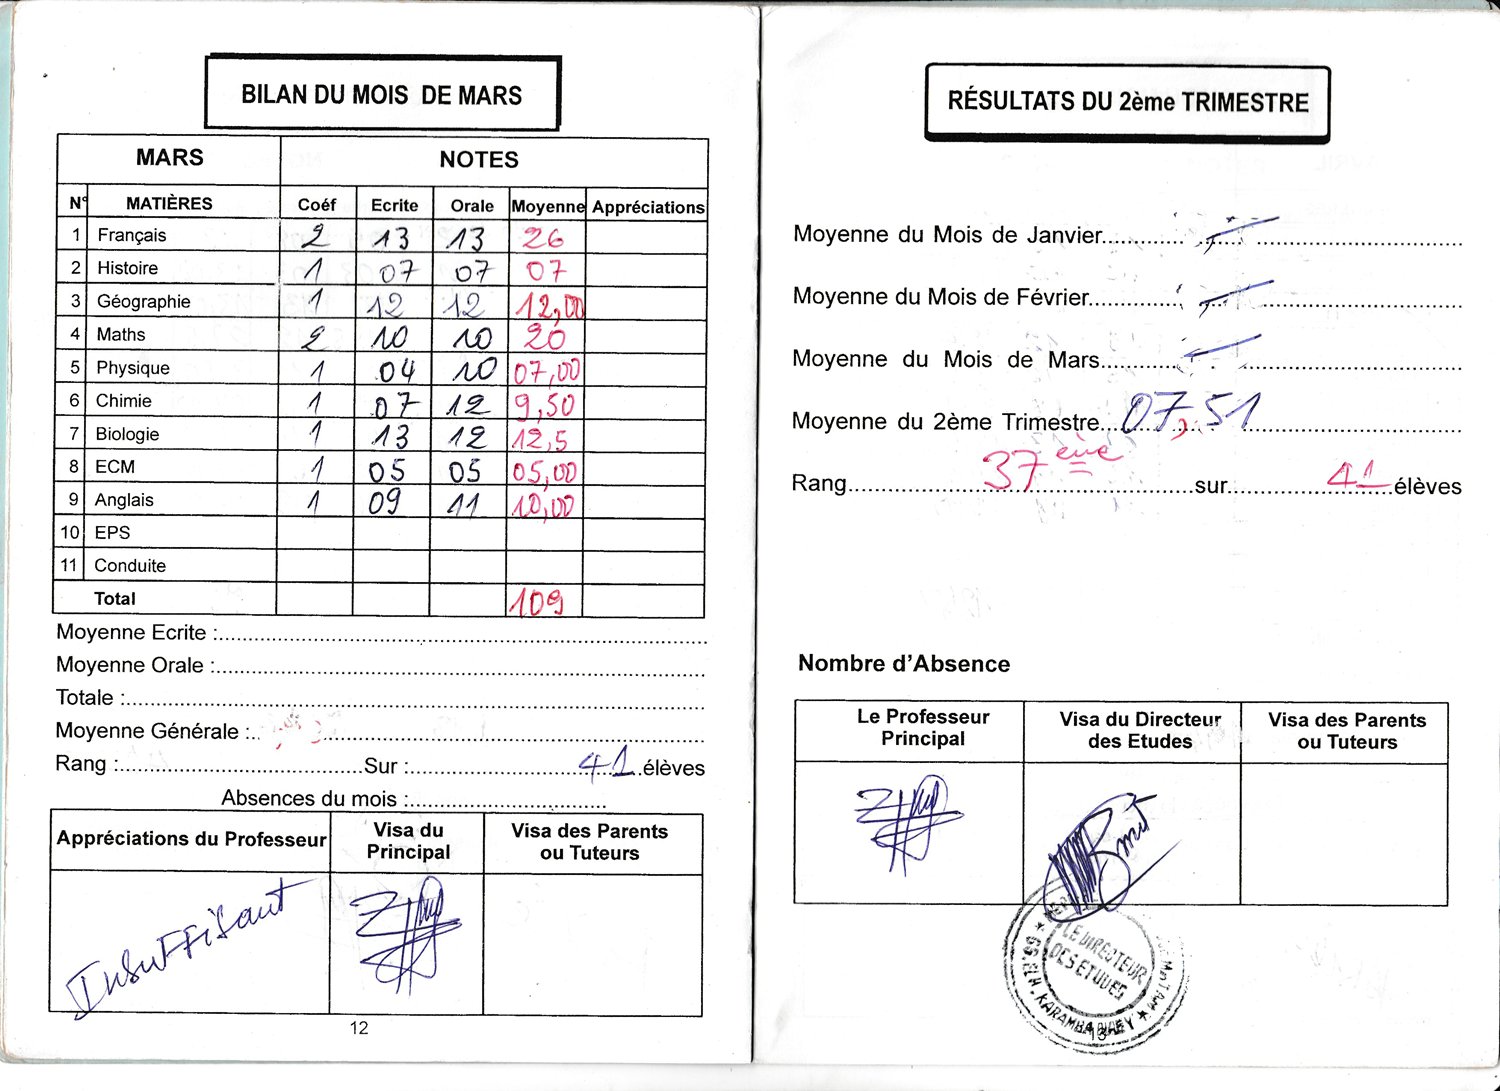 BILAN DU MOIS DE MARS
MARS NOTES
N° MATIÈRES Coéf Ecrite Orale Moyenne Appréciations
1 Français 2 13 13 26
2 Histoire 1 07 07 07
3 Géographie 1 12 12 12,00
4 Maths 2 10 10 20
5 Physique 1 04 10 07,00
6 Chimie 1 07 12 9,50
7 Biologie 1 13 12 12,5
8 ECM 1 05 05 05,00
9 Anglais 1 09 11 10,00
10 EPS
11 Conduite
Total 109
Moyenne Ecrite :
Moyenne Orale :
Totale :
Moyenne Générale :
Rang : Sur : 41 élèves
Absences du mois :
Appréciations du Professeur
Visa du Principal
Visa des Parents ou Tuteurs
Insuffisant
12
RÉSULTATS DU 2ème TRIMESTRE
Moyenne du Mois de Janvier
Moyenne du Mois de Février
Moyenne du Mois de Mars
Moyenne du 2ème Trimestre 07,51
Rang 37ème sur 41 élèves
Nombre d'Absence
Le Professeur Principal
Visa du Directeur des Etudes
Visa des Parents ou Tuteurs
LE DIRECTEUR
DES ETUDES
13